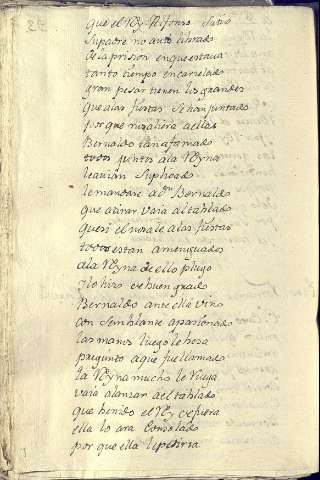 que el Rey Alfonso su tio
su padre no auia librado
de la prision en que estaua
tanto tiempo encarcelado
gran pesar tienen los grandes
que a las fiestas se han juntado
por que no saliera a ellas
Bernaldo tan afamado
todos juntos a la Reyna
le auian suplicado
le mandase a dⁿ Bernaldo
que a tirar vaia al tablado
que si el no sale a las fiestas
todos estan amenguados
a la Reyna de ello plugo
y lo hizo de buen grado
Bernaldo ante ella vino
con semblante apasionado
las manos luego le besa
pregunto a que fue llamado
la Reyna mucho le ruega
vaia a lanzar a el tablado
que benido el Rey de fuera
ella lo ara consolado
por que ella le pediria